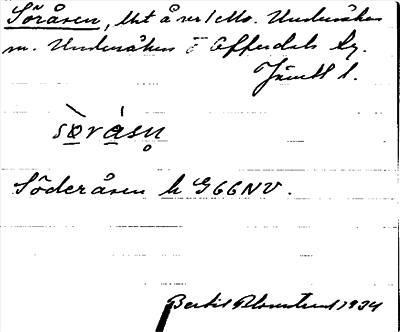 Söråsen, Utt å vs / Mo. Undersåker
m. Undersåkers o Offerdals tg.
Jämtl l.
sò̱rá̱sn̥
Söderåsen h G66NV.
Bertil Blomstrand 1934